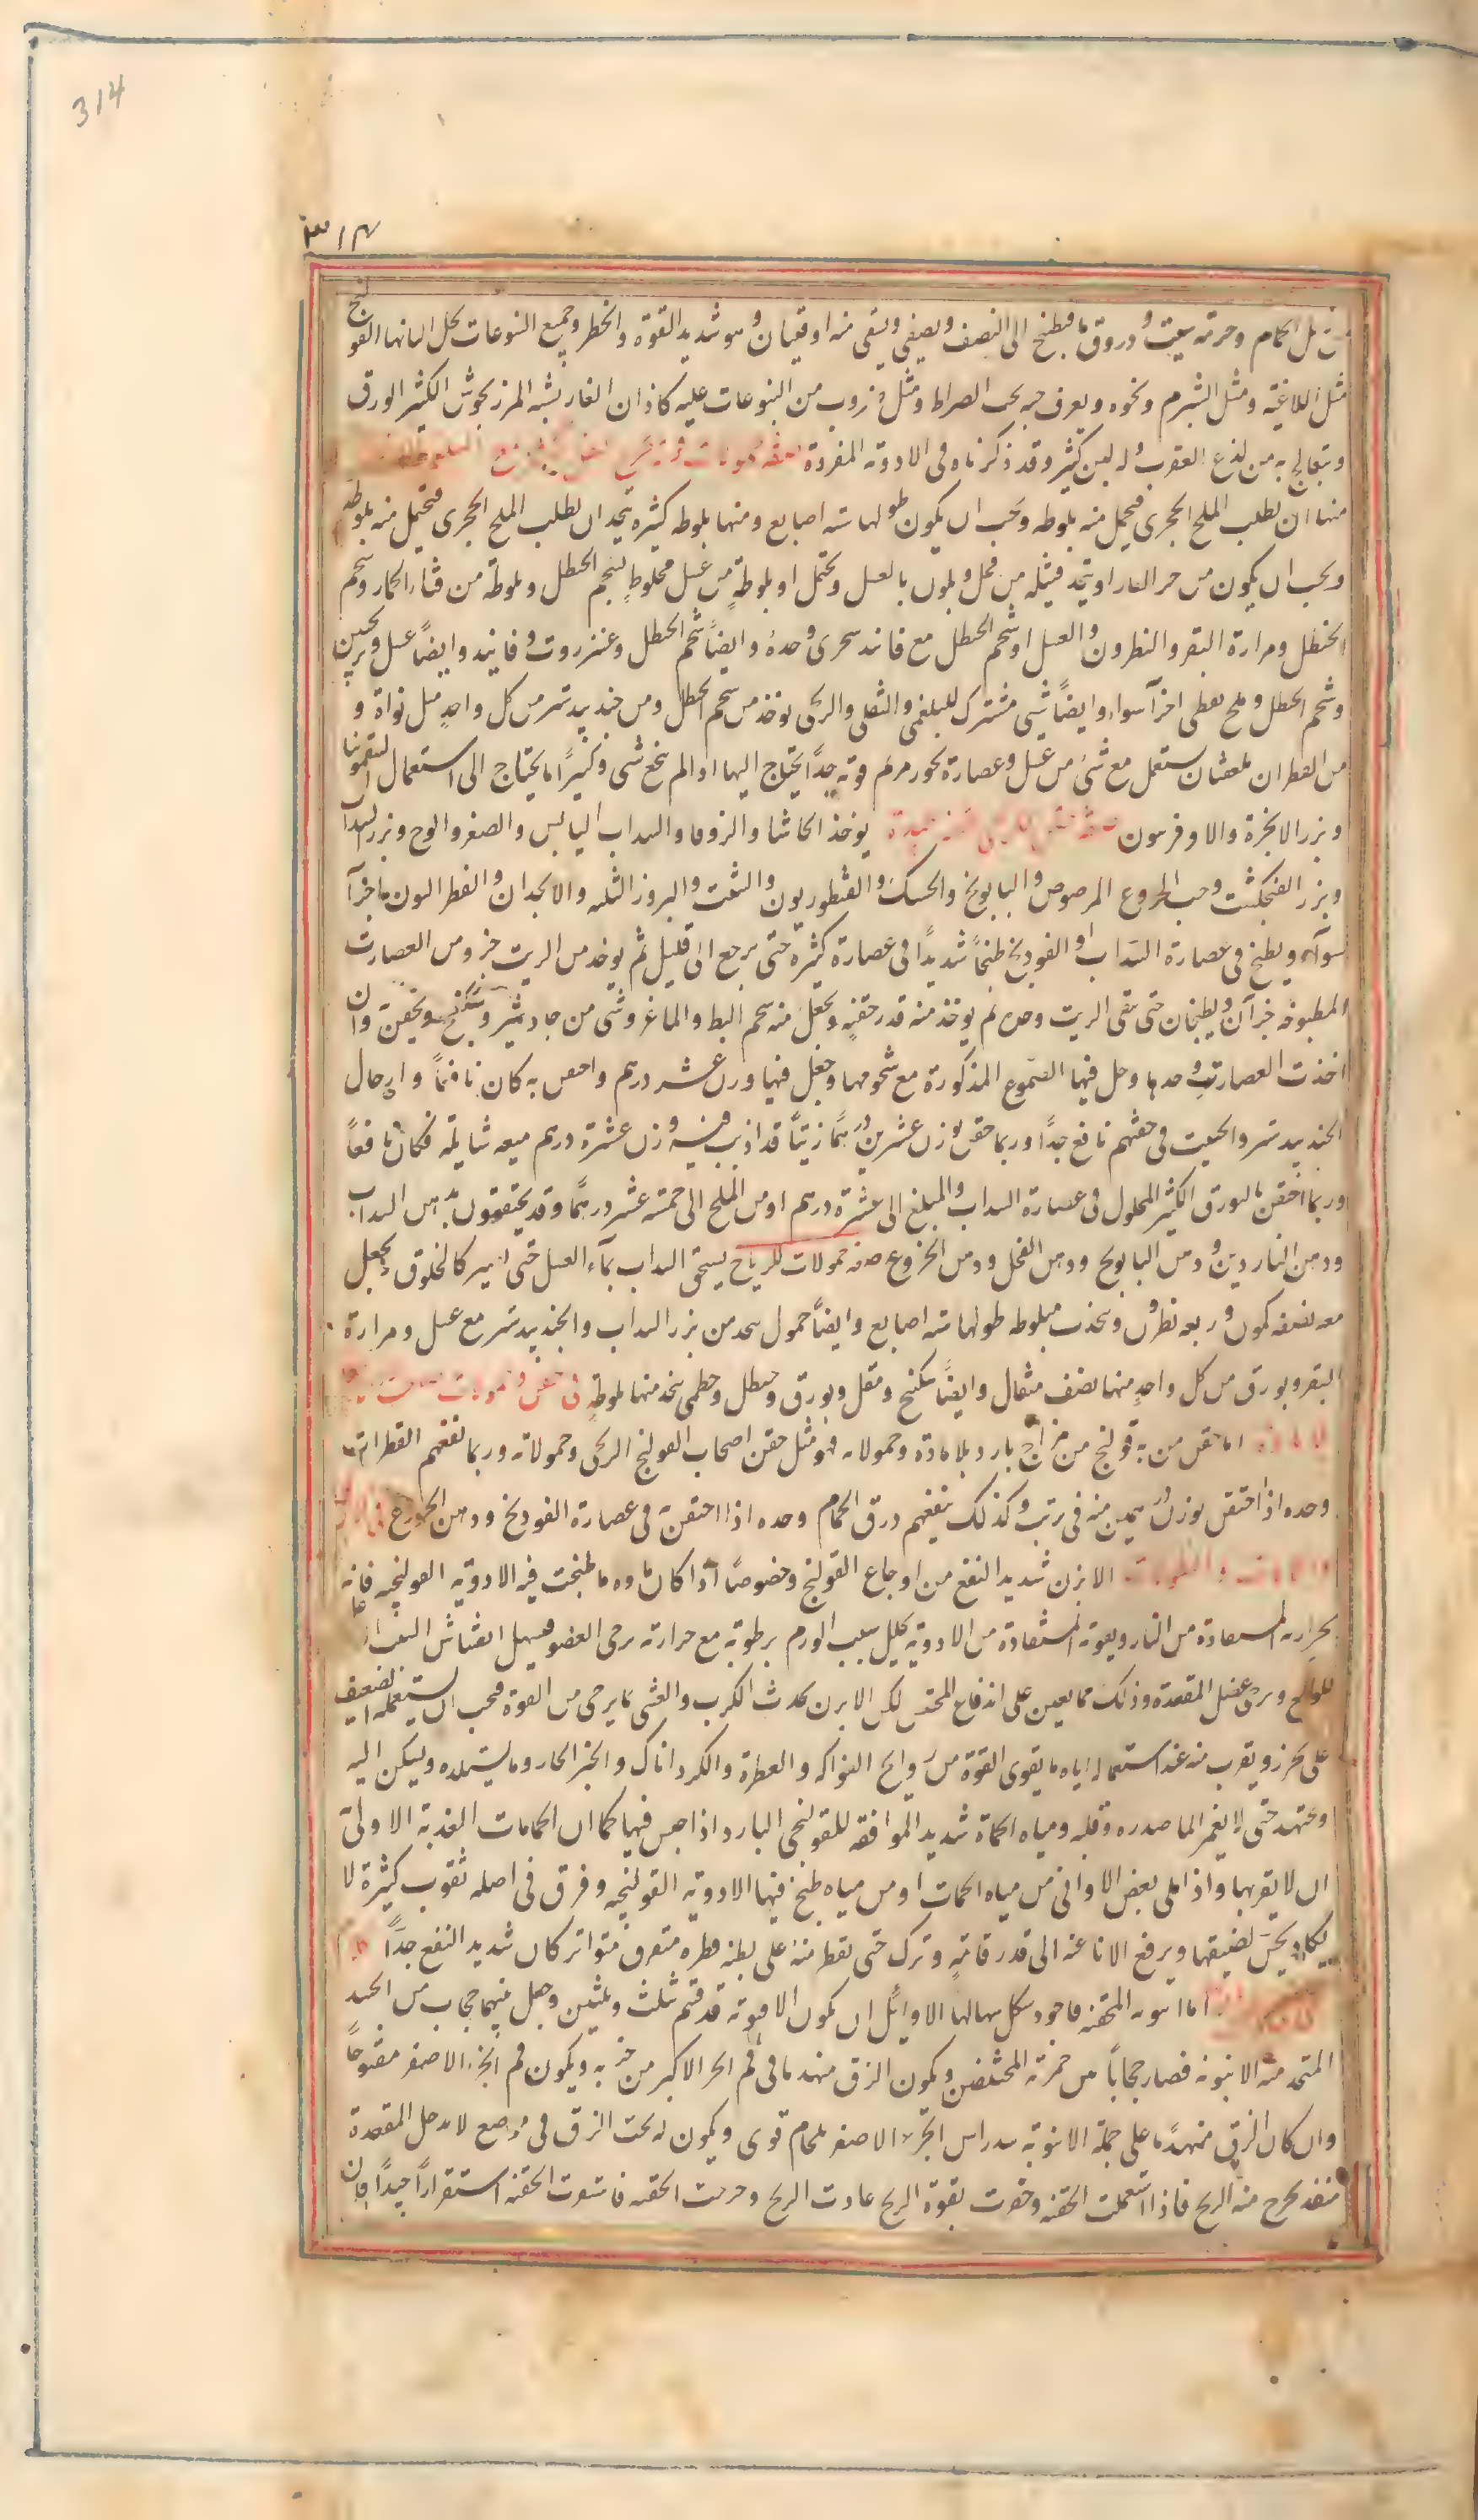 314
٣١٤
الحمام وحرقة سبت و دروق ما فيطبخ الى النصف ويصفى ويسقى منه اوقيتان وهو شديد القوة والخطر وجميع اليتوعات تحل البانها القولنج
مثل اللاغية ومثل الشبرم ونحوه ويعرف حبه بحب الضراط ومثل ضروب من اليتوعات عليه كاذان الفار يشبه المرزنجوش الكثير الورق
ويعالج به من لذع العقرب وله لبن كثير وقد ذكرناه فى الادوية المفردة
منها ان يطلب الملح الحجرى فيحمل منه بلوطه ويجب ان يكون طولها ستة اصابع ومنها بلوطه كثيرة يتخذ ان يطلب الملح الحجرى فيحمل منه بلوطة
ويجب ان يكون من حر النار او يتخذ فتيلة من فجل ويلوث بالعسل ويحتمل او بلوطة من عسل مخلوط بشحم الحنظل وبلوطة من قثاء الحمار وشحم
الحنظل ومرارة البقر والنطرون والعسل او شحم الحنظل مع فانيد سحرى وحده وايضاً شحم الحنظل وعنزروت وفانيد وايضاً عسل
وشحم الحنظل وملح نفطى اجزآ سواء وايضاً شئ مشترك للبلغمى والثفلى والريحى يوخذ من شحم الحنظل ومن جندبيدستر من كل واحد مثل نواة و
من القطران ملعقتان يستعمل مع شئ من عسل وعصارة بخور مريم قوية جداً يحتاج اليها اذا لم ينجع شئ وكثيراً ما يحتاج الى استعمال السقمونيا
وبزر الانجرة والاوفربيون يوخذ الحاشا والزوفا والسداب اليابس والصعتر والوج وبزر السداب
وبزر الفنجنكشت وحب الخروع المرضوض والبابونج والحسك والقنطوريون والشبت والبزور الثلثه والانجدان والفطراساليون اجزآ
سوآء ويطبخ فى عصارة السداب او الفودنج طبخاً شديداً فى عصارة كثيرة حتى يرجع الى قليل ثم يوخذ من الزيت جزء ومن العصارت
المطبوخه جزآن ويطبخان حتى يبقى الزيت وحده ثم يوخذ منه قدر حقنه ويجعل منه شحم البط والماعز وشئ من جاوشير وسكبينج ويحقن وان
اخذت العصارت وحدها وحل فيها الصموغ المذكورة مع شحومها وجعل فيها وزن عشر درهم واحقن به كان نافعاً وادخال
الجندبيدستر والحلتيت فى حقنهم نافع جداً وربما حقن بوزن عشرين درهماً زيتاً قد اذيب فيه وزن عشرة درهم ميعه سايلة فكان نافعاً
وربما احقن بالبورق الكثير المحلول فى عصارة السداب والمبلغ الى عشرة درهم او من الملح الى خمسة عشر درهماً وقد يحقنون بدهن السداب
ودهن الناردين ودهن البابونج ودهن الفجل ودهن الخروع صفه حمولات للرياح يسحق السداب بماء العسل حتى يصير كالخلوق ويجعل
معه نصفه كمون وربعه نطرون ويتخذ منه بلوطه طولها ستة اصابع وايضاً حمول يتخذ من بزر السداب والجندبيدستر مع عسل ومرارة
البقر وبورق من كل واحد منها نصف مثقال وايضاً سكبينج ومقل وبورق وحنظل وخطمى يتخذ منها بلوطة
اما حقن من به قولنج من مزاج بارد بلا مادة وحمولاته فهو مثل حقن اصحاب القولنج الريحى وحمولاته وربما نفعهم القطران
وحده اذا احتقن بوزن درهمين منه فى زيت وكذلك ينفعهم درق الحمام وحده اذا احتقن فى عصارة الفودنج ودهن الخروع
الابزن شديد النفع من اوجاع القولنج وخصوصاً اذا كان ماوه ما طبخت فيه الادوية القولنجيه فانه
بحرارته المستفادة من النار وبقوته المستفادة من الادوية يحلل سبب الورم برطوبته مع حرارته يرخى العضو فيسهل انفشاش السبب
ويرخى عضل المقعدة وذلك مما يعين على اندفاع المحتقن لكن الابزن يحدث الكرب والغشى بما يرخى من القوة فيجب ان يستعمله الضعيف
على تحرز ويقرب منه عند استعماله اياه ما يقوى القوة من روايح الفواكه والعطرة والكردناك والخبز الحار وما يستلذه وليكن اليه
ويجتهد حتى لا يغمر الما صدره وقلبه ومياه الحماة شديد الموافقه للقولنجى البارد اذا جلس فيها كما ان الحمامات العذبة الاولى
ان لا يقربها واذا ملى بعض الاوانى من مياه الحمات او من مياه طبخ فيها الادوية القولنجيه وفرق فى اصله ثقوب كثيرة لا
يكاد يحس لضيقها ويرفع الانا عنه الى قدر قامة وترك حتى يقطر منه على بطنه قطره متفرق متواتر كان شديد النفع جداً
اما انبوبه المحقنه فاجود شكل مثالها الاوائل ان يكون الانبوبة قد قسم ثلث وثلثين وجعل بينهما حجاب من الجسد
المتخذ منه الانبوبه فصار حجاباً من جزئه المختلفين ويكون الزق منهدما فى فم الجز الاكبر من جزءيه ويكون فم الجزء الاصغر مفتوحاً
وان كان الزق منهدماً على جملة الانبوبة سد راس الجزء الاصغر بلحام قوى ويكون له تحت الزق فى موضع لا يدخل المقعدة
منفذ يخرج منه الريح فاذا استعملت الحقنه وحفزت بقوة الريح عادت الريح وخرجت الحقنه فاستقرت الحقنه استقراراً جيداً وان